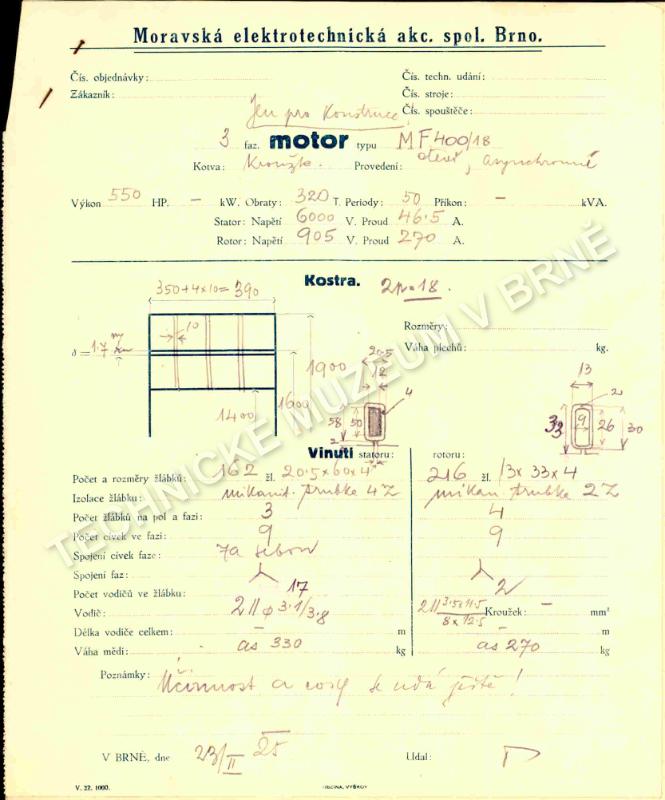 Moravská elektrotechnická akc. spol. Brno.
Čís. objednávky: Čís. techn. udání:
Zákazník: Čís. stroje:
Jen pro Konstrukce Čís. spouštěče:
3 faz. motor typu MF 400/18
Kotva: Kroužk. Provedení: otevř., asynchronní
Výkon 550 HP. – kW. Obraty: 320 T. Periody: 50 Příkon: – kVA.
Stator: Napětí 6000 V. Proud 46.5 A.
Rotor: Napětí 905 V. Proud 270 A.
Kostra. 2p=18.
350+4x10=390
Rozměry:
10
δ = 1.7 m/m
Váha plechů: kg.
20.5
1900
12
13
4
2
1600
58 50
33 9 26 30
1400
2
Vinutí statoru: rotoru:
Počet a rozměry žlábků: 162 žl. 20.5x60x4 216 žl. 13x33x4
Izolace žlábku: mikanit. trubke 4Z mikan. trubke 2Z
Počet žlábků na pol a fazi: 3 4
Počet cívek ve fazi: 9 9
Spojení cívek faze: za sebou
Spojení faz:
Počet vodičů ve žlábku: 17 2
Vodič: 2 || φ 3.1/3.8 2 || 3.5x11.5 / 8x12.5 Kroužek: – mm²
Délka vodiče celkem: – m m
Váha mědi: as 330 kg as 270 kg
Poznámky: Účinnost a cosφ se udá ještě!
V BRNĚ, dne 23/II 25 Udal:
V. 27. 1000.
TECHNICKÉ MUZEUM V BRNĚ